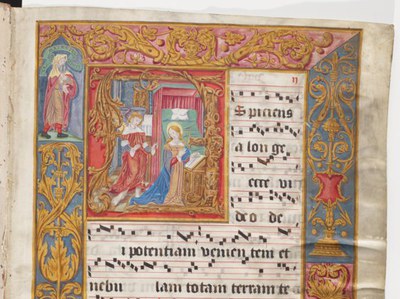 Spiciens
a lon ge
ecce vi
de o de
i potentiam venien tem et
nebu lam totam terram te